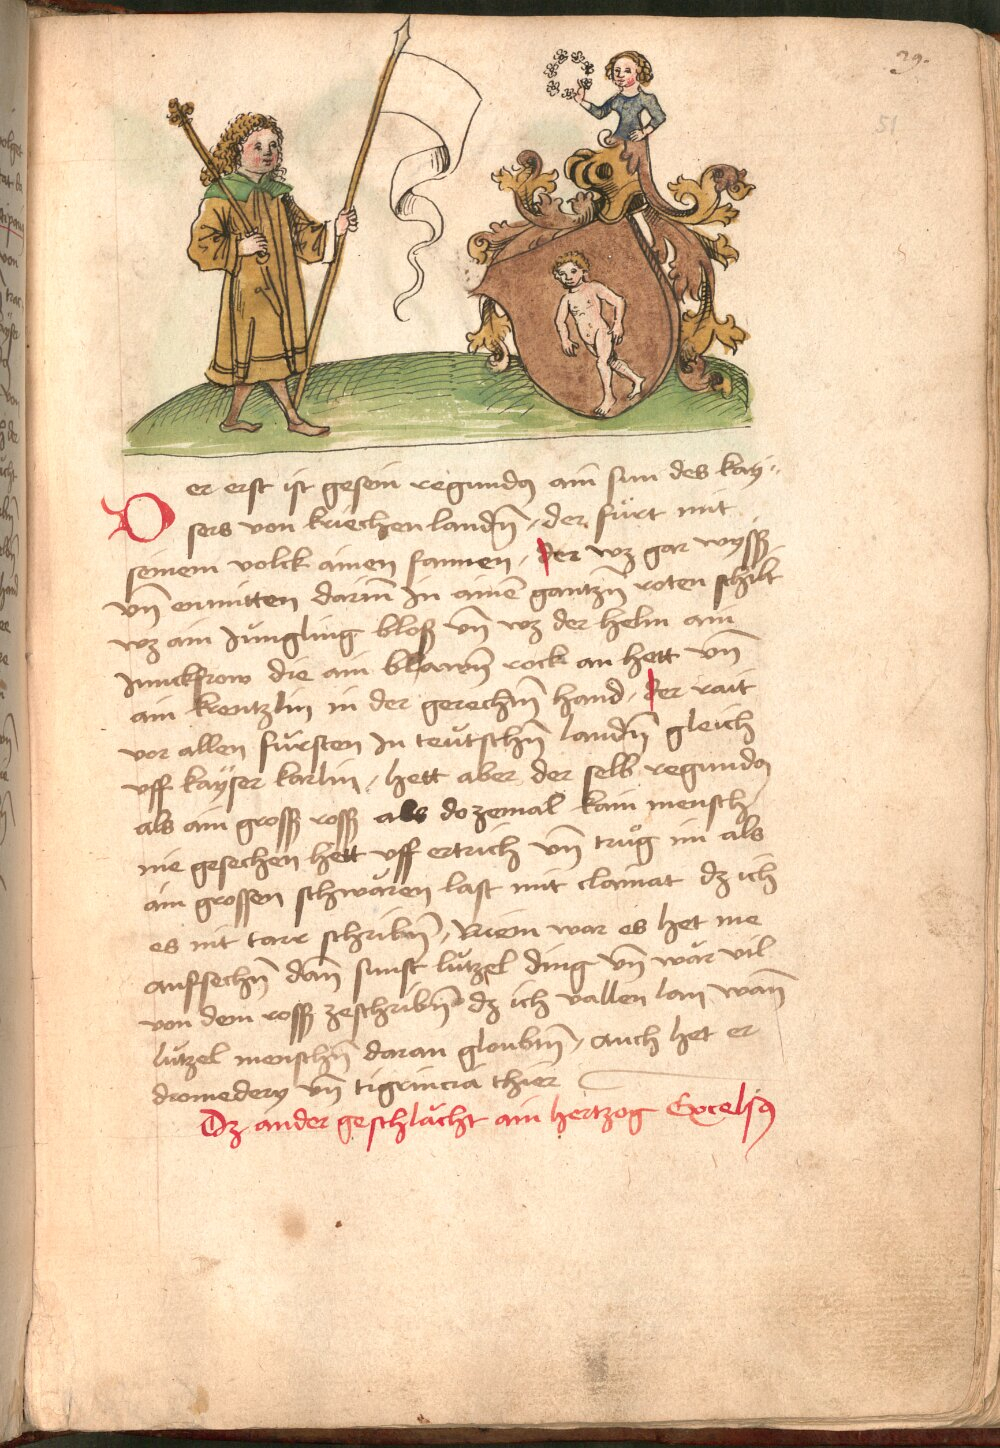 39.
51
Der erst ist gesein regundus ain sun des kay-
sers von kriechen landn̄, der fůrt mit
seinem volck ainen fannen, der wz gar wyss
vn̄ enmitten darin̄ In ainē gantzn̄ roten schilt
wz ain Jůngling bloß vn̄ wz der helm ain
Junckfrow die ain blawen̄ rock an hett vn̄
ain krentzlin in der gerechtn̄ hand, der rait
vor allen fürsten In teütschn̄ landn̄ gleich
vff kaÿser karlin, hett aber der selb regundus
als ain gross ross als dozemal kain mensch
nie gesechen hett vff ertrich vn̄ trůg im als
ain grossen schwären last mit clainat dz ich
es nit tarr schribn̄, wem war es het me
auffsechn̄ dan̄ sunst lützel ding vn̄ wär vil
von dem ross zeschribn̄ dz ich vallen lan wan̄
lützel menschn̄ daran gloubtn̄, auch het er
dromedery vn̄ tigrincia thier
Dz ander geschlächt ain hertzog Excelsus